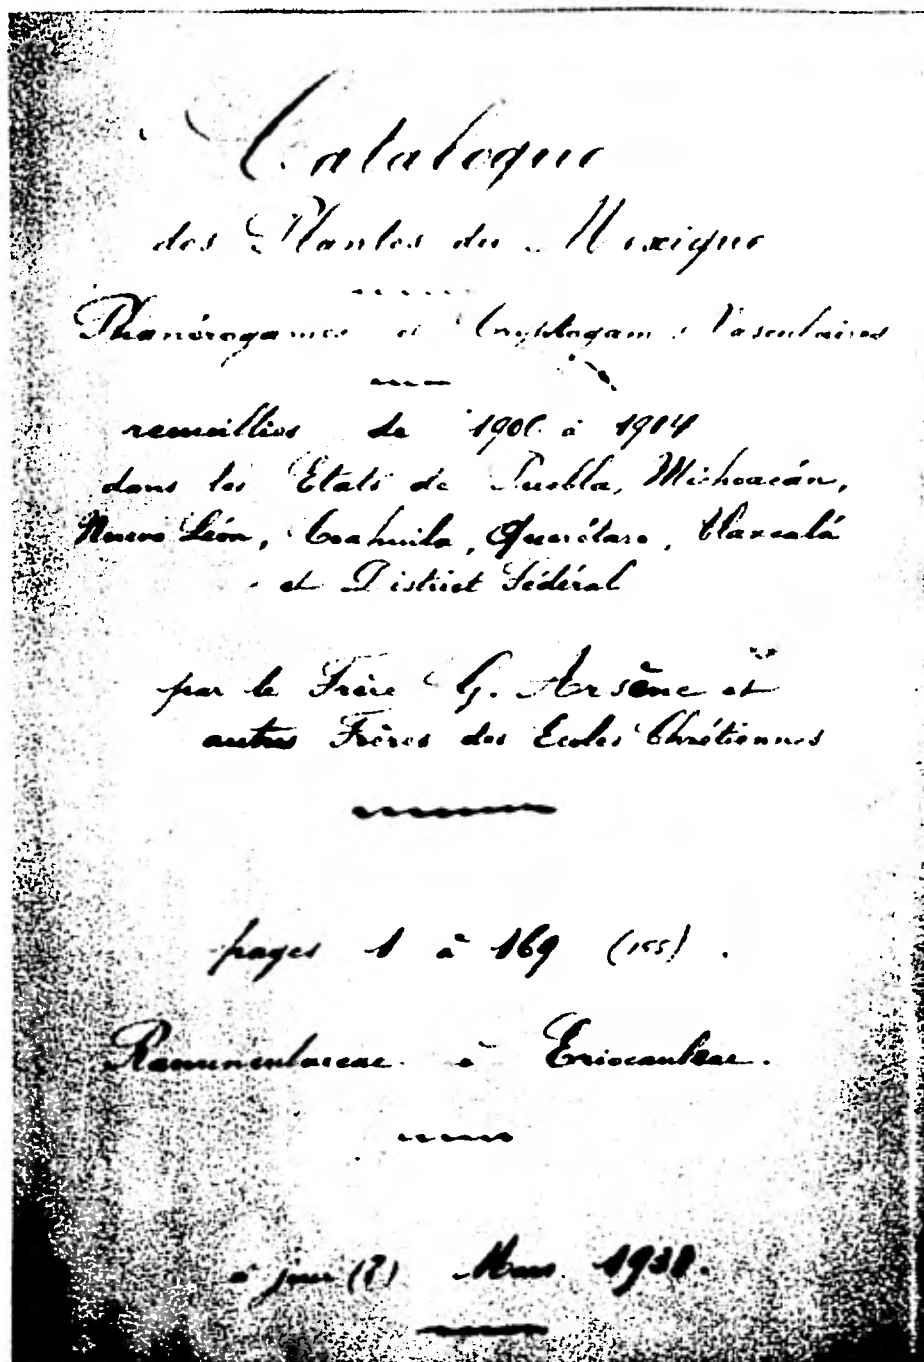 Catalogue
des Plantes du Mexique
Phanérogames et Cryptogames Vasculaires
recueillies de 190 à 19
dans les Etats de Puebla, Michoacán,
Nuevo León, Coahuila, Querétaro, Tlaxcalá
et District Fédéral
par le Frère G. Arsène et
autres Frères des Ecoles Chrétiennes
pages 1 à 169 (155).
Ranunculaceae à Eriocauleae.
à jour (?) Mars 193